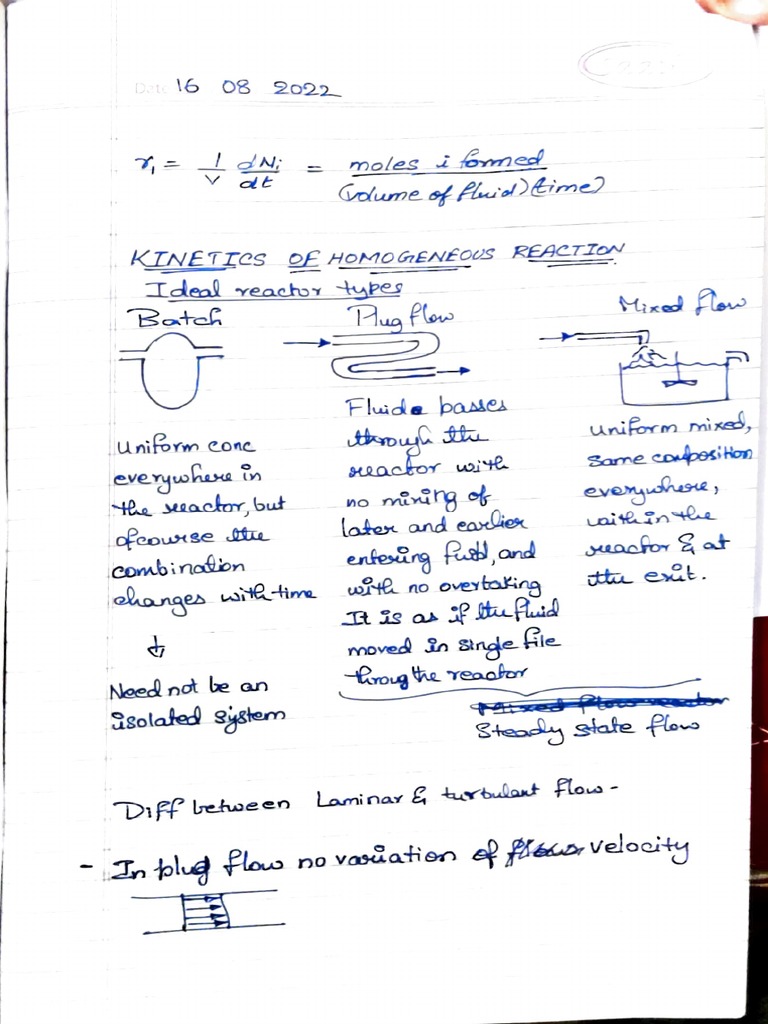 Date 16 08 2022
r₁ = 1/V dNi/dt = moles i formed / (volume of fluid) (time)
KINETICS OF HOMOGENEOUS REACTION
Ideal reactor types
Batch Plug flow Mixed flow
Uniform conc
everywhere in
the reactor, but
ofcourse the
combination
changes with time
Need not be an
isolated system
Fluid basses
through the
reactor with
no mixing of
later and earlier
entering fuid, and
with no overtaking
It is as if the fluid
moved in single file
throug the reactor
uniform mixed,
same composition
everywhere,
within the
reactor & at
the exit.
Mixed flow reactor
Steady state flow
Diff between Laminar & turbulant flow -
- In plug flow no variation of velocity